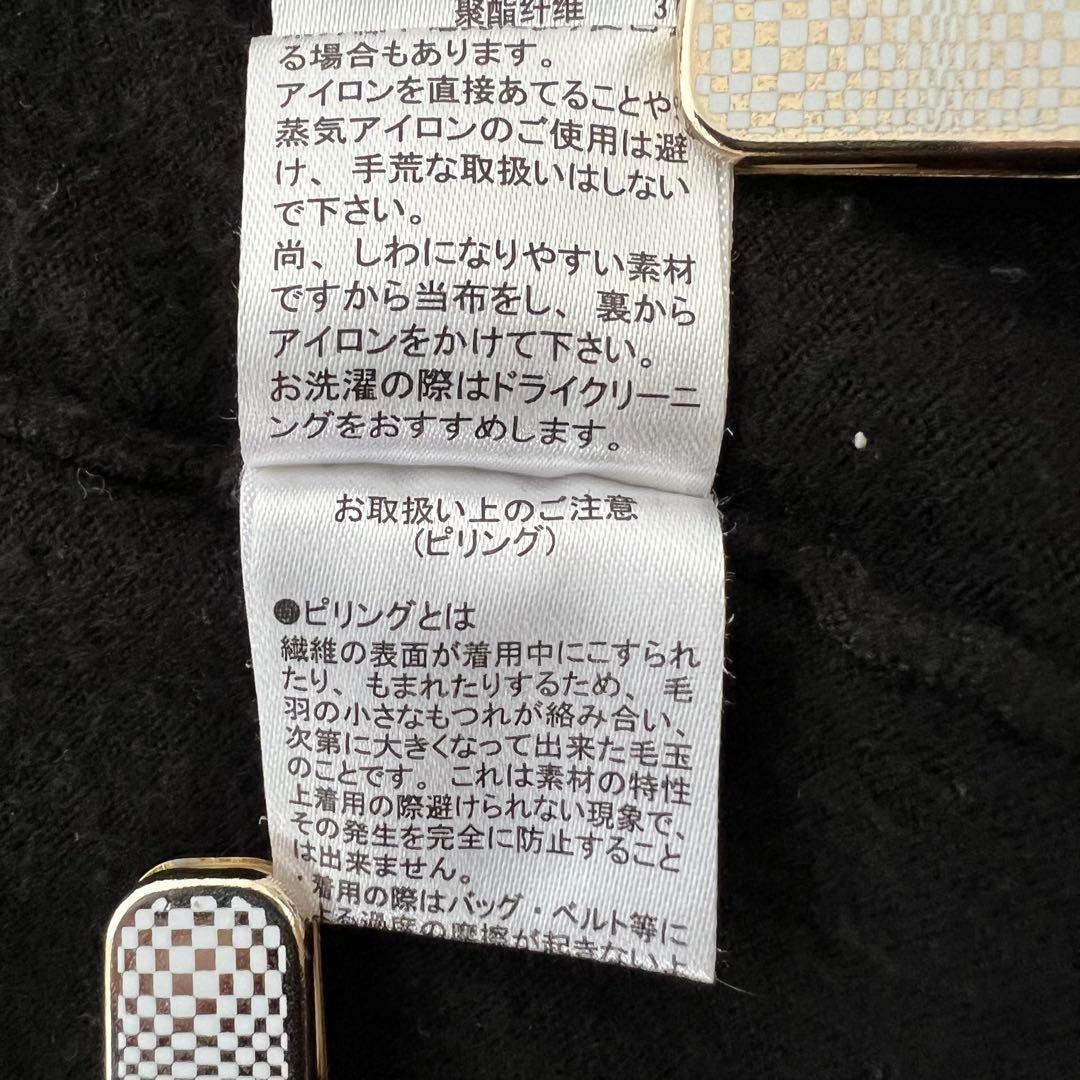 聚酯纤维 3
る場合もあります。
アイロンを直接あてることや
蒸気アイロンのご使用は避
け、手荒な取扱いはしない
で下さい。
尚、しわになりやすい素材
ですから当布をし、裏から
アイロンをかけて下さい。
お洗濯の際はドライクリーニ
ングをおすすめします。
お取扱い上のご注意
(ピリング)
●ピリングとは
繊維の表面が着用中にこすられ
たり、もまれたりするため、毛
羽の小さなもつれが絡み合い、
次第に大きくなって出来た毛玉
のことです。これは素材の特性
上着用の際避けられない現象で、
その発生を完全に防止すること
は出来ません。
・着用の際はバッグ・ベルト等に
よる過度の摩擦が起きないよ